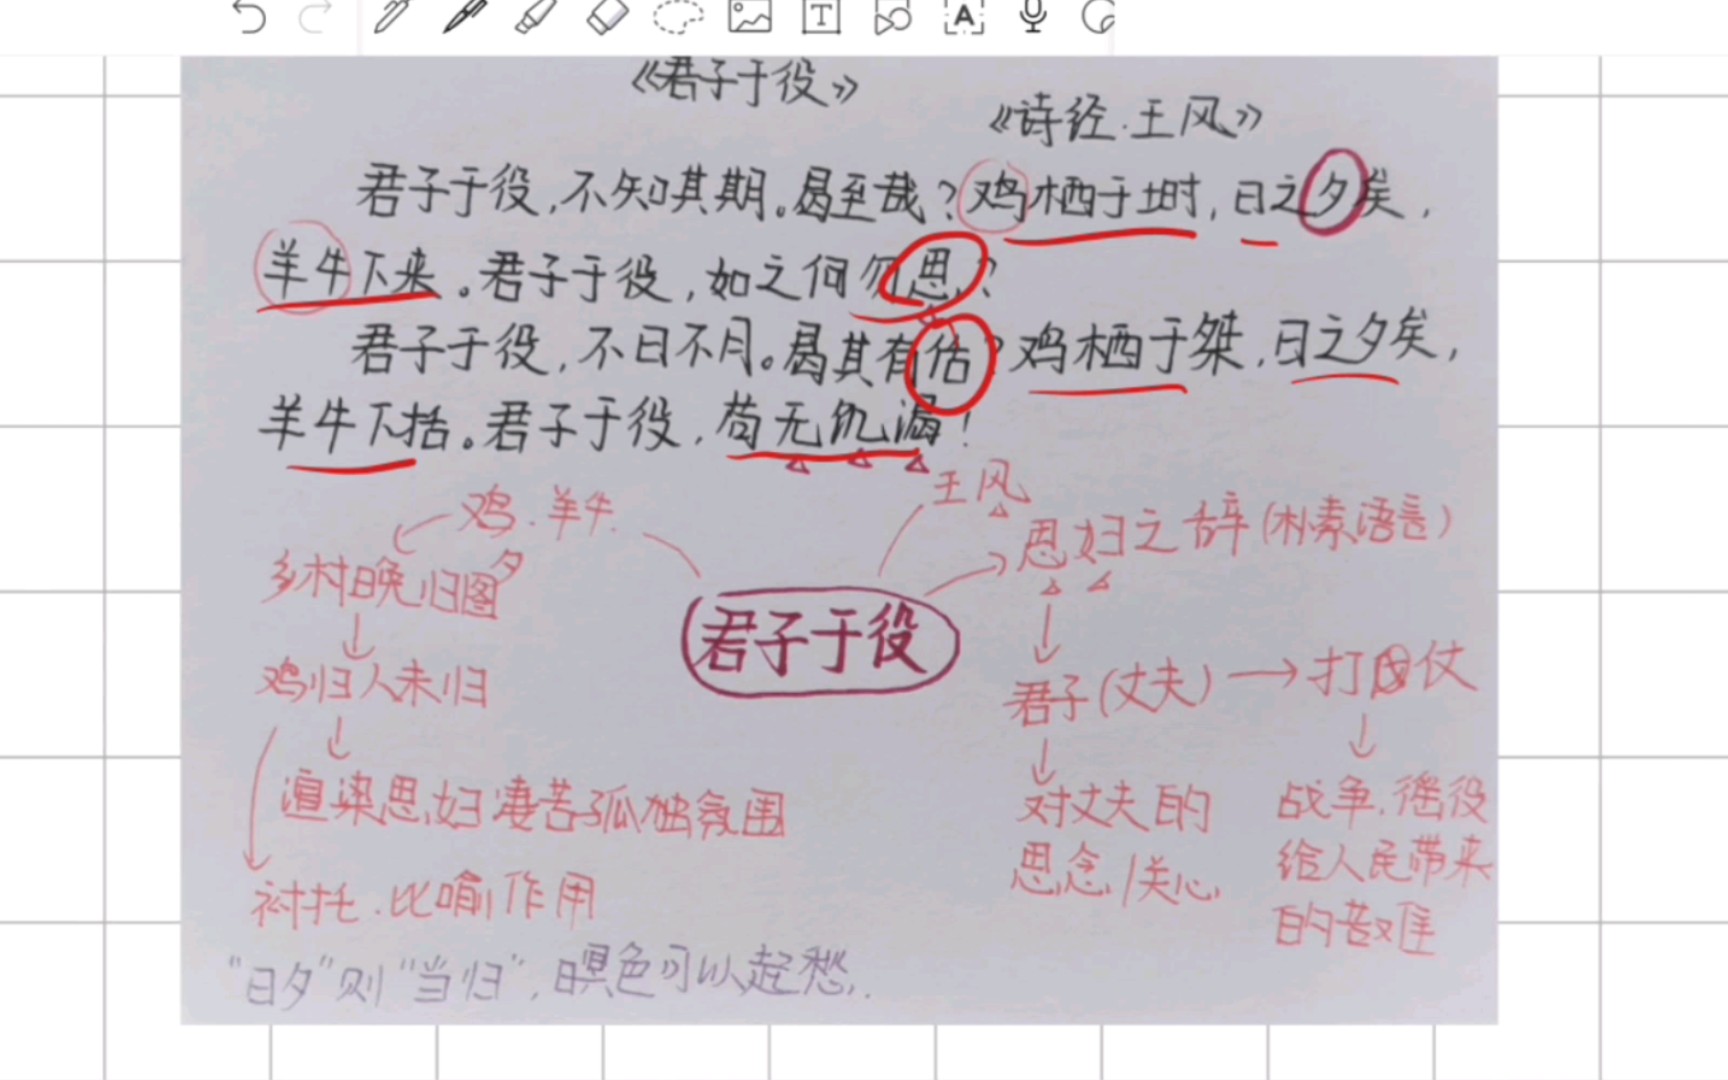 《君子于役》
《诗经·王风》
君子于役,不知其期。曷至哉?鸡栖于埘,日之夕矣,
羊牛下来。君子于役,如之何勿思?
君子于役,不日不月。曷其有佸?鸡栖于桀,日之夕矣,
羊牛下括。君子于役,苟无饥渴!
鸡·羊牛
乡村晚归图
夕
鸡归人未归
渲染思妇凄苦孤独氛围
衬托·比喻作用
君子于役
王风
思妇之辞(朴素语言)
君子(丈夫)→打仗
对丈夫的
思念/关心
战争、徭役
给人民带来
的苦难
"日夕"则"当归",暝色可以起愁,.
A
T